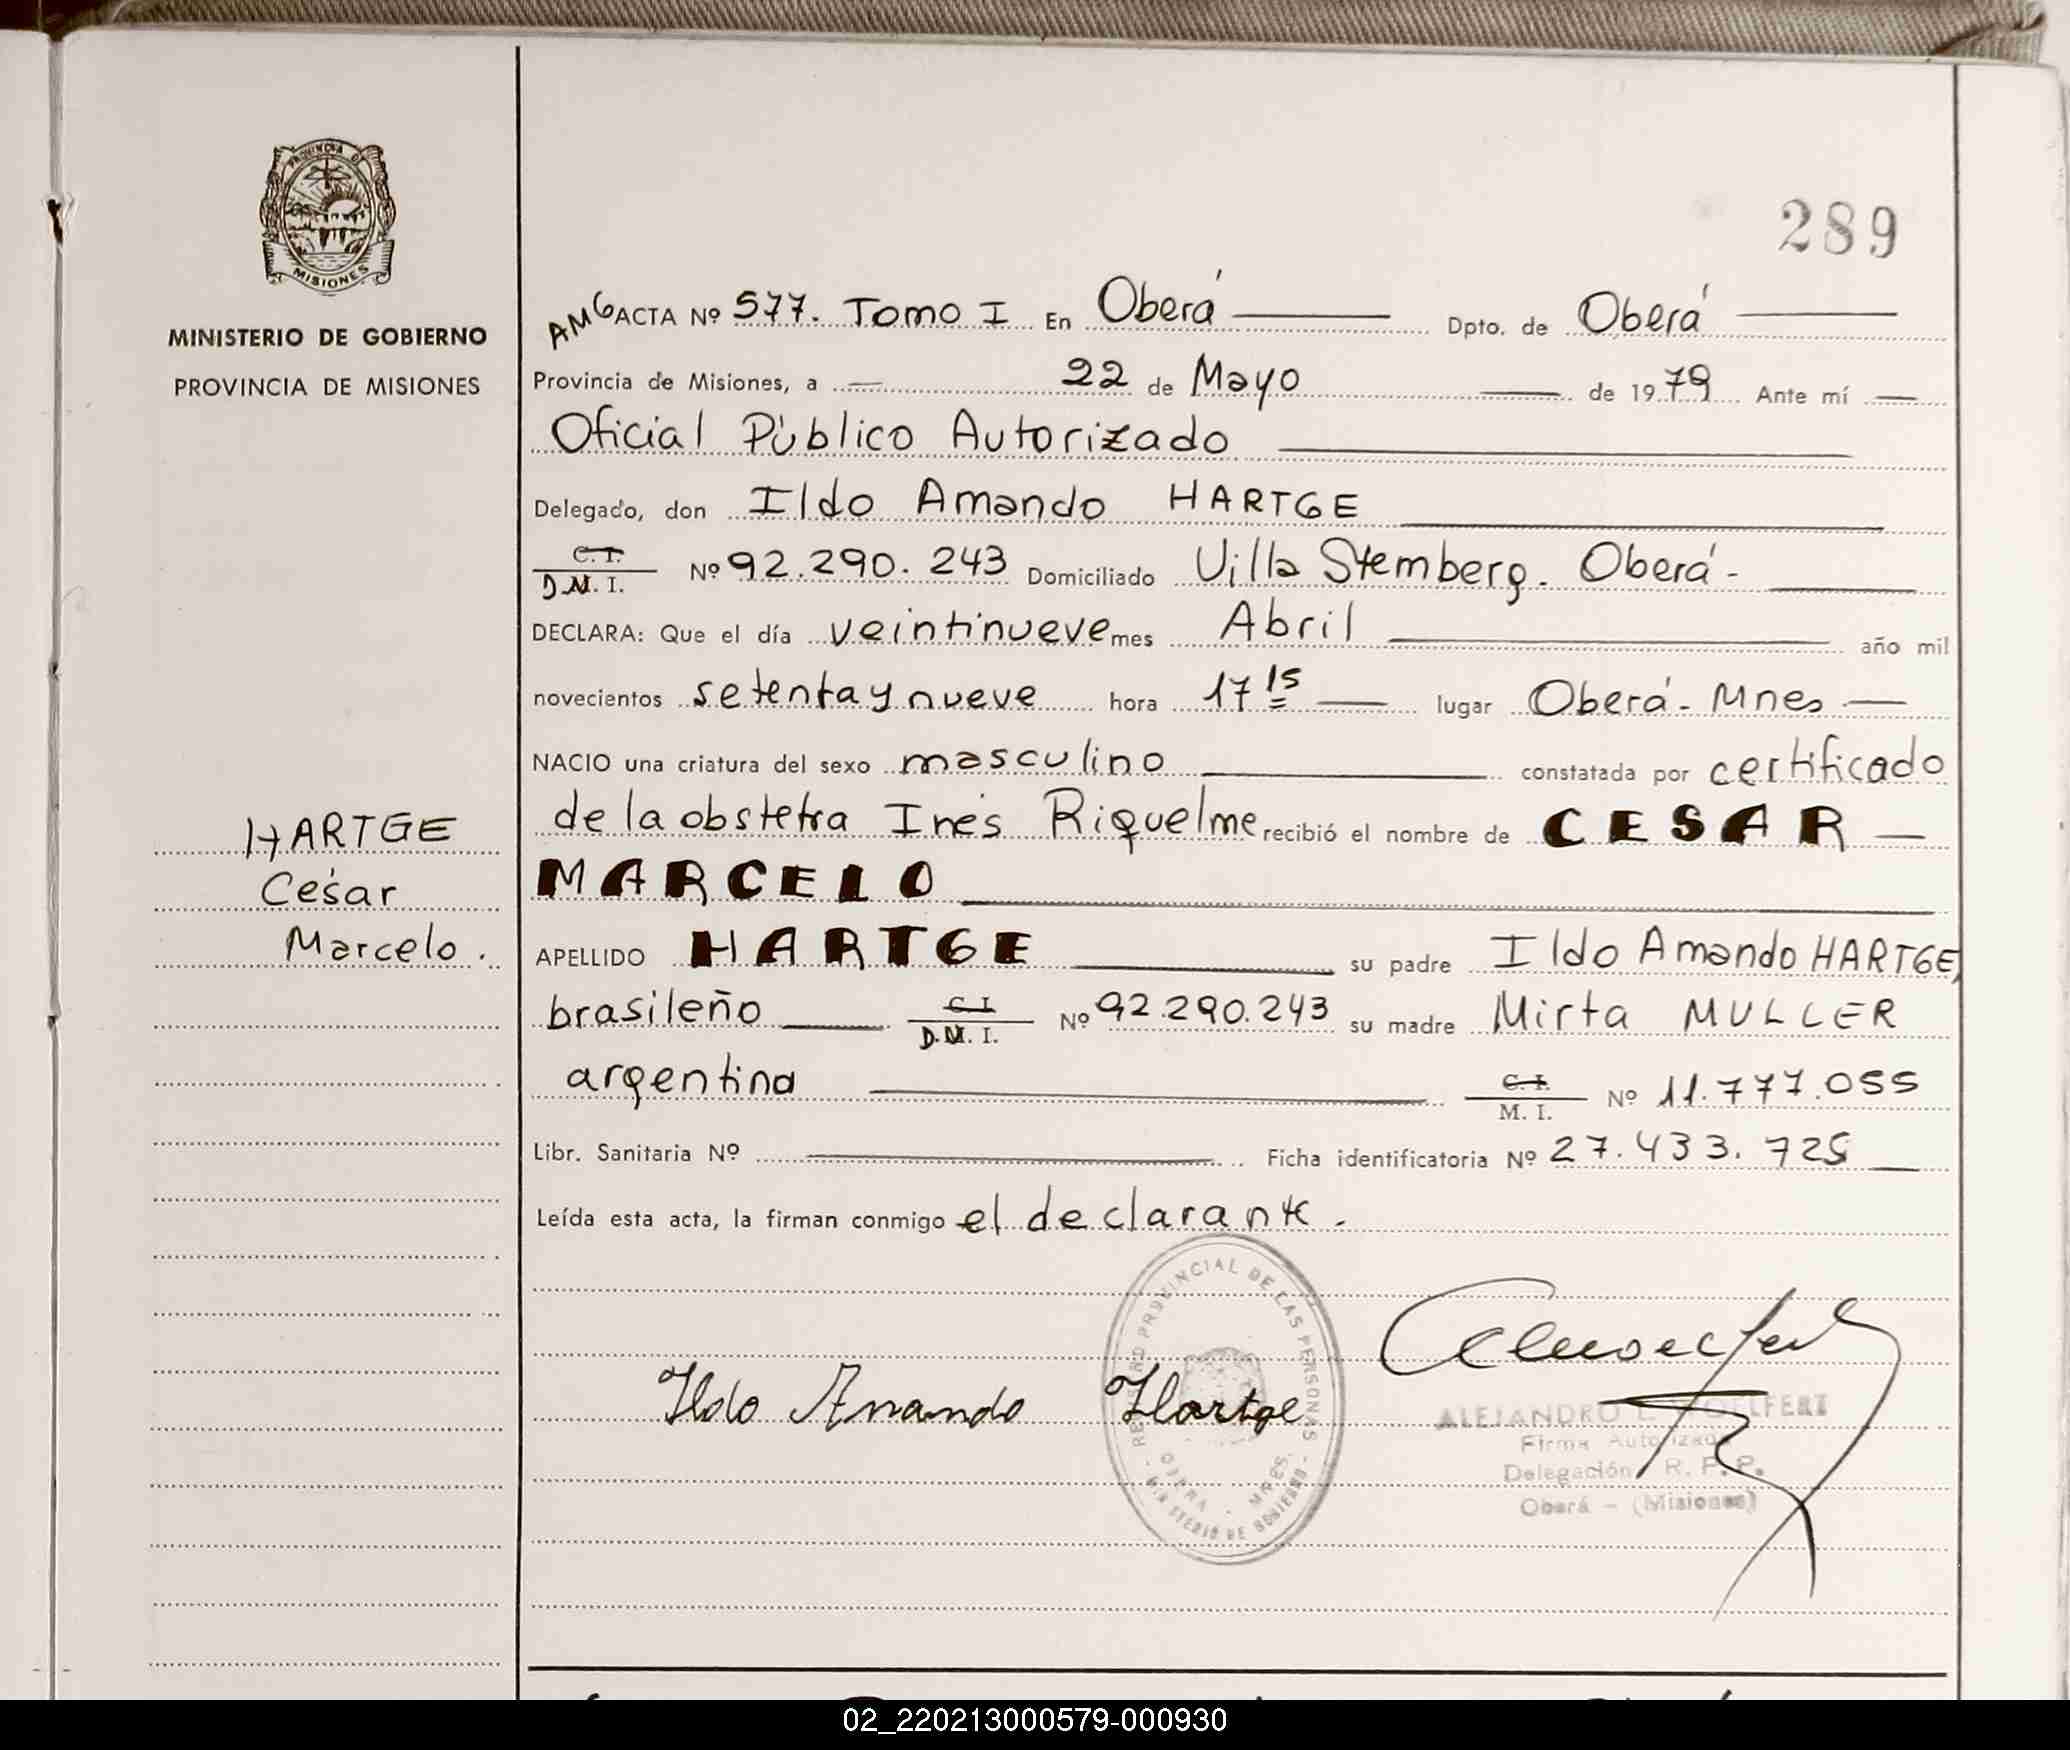 PROVINCIA DE
MISIONES
MINISTERIO DE GOBIERNO
PROVINCIA DE MISIONES
289
AMG ACTA Nº 577. Tomo I En Oberá Dpto. de Oberá
Provincia de Misiones, a 22 de Mayo de 1979 Ante mí
Oficial Público Autorizado
Delegado, don Ildo Amando HARTGE
C. I.
D.M. I. Nº 92.290.243 Domiciliado Villa Stemberg. Oberá-
DECLARA: Que el día veintinueve mes Abril año mil
novecientos setenta y nueve hora 17 15 lugar Oberá- Mnes
NACIO una criatura del sexo masculino constatada por certificado
de la obstetra Inés Riquelme recibió el nombre de CESAR
MARCELO
APELLIDO HARTGE su padre Ildo Amando HARTGE,
brasileño C. I. D.M. I. Nº 92.290.243 su madre Mirta MULLER
argentina C. I. M. I. Nº 11.777.055
Libr. Sanitaria Nº Ficha identificatoria Nº 27.433.725
Leída esta acta, la firman conmigo el declarante.
HARTGE
César
Marcelo.
Ildo Amando Hartge
REGISTRO PROVINCIAL DE LAS PERSONAS
OBERA - MNES.
- MINISTERIO DE GOBIERNO -
ALEJANDRO L. WOLFFERT
Firma Autorizada
Delegación R. P. P.
Oberá - (Misiones)
02_220213000579-000930